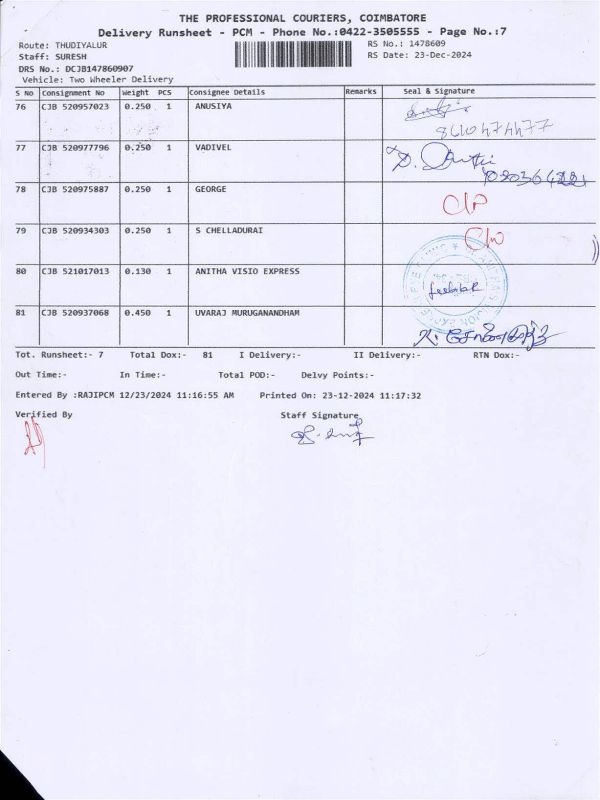 THE PROFESSIONAL COURIERS, COIMBATORE
Delivery Runsheet - PCM - Phone No.:0422-3505555 - Page No.:7
Route: THUDIYALUR RS No.: 1478609
Staff: SURESH RS Date: 23-Dec-2024
DRS No.: DCJB147860907
Vehicle: Two Wheeler Delivery
S No Consignment No Weight PCS Consignee Details Remarks Seal & Signature
76 CJB 520957023 0.250 1 ANUSIYA
77 CJB 520977796 0.250 1 VADIVEL
78 CJB 520975887 0.250 1 GEORGE
79 CJB 520934303 0.250 1 S CHELLADURAI
80 CJB 521017013 0.130 1 ANITHA VISIO EXPRESS
81 CJB 520937068 0.450 1 UVARAJ MURUGANANDHAM
Tot. Runsheet:- 7 Total Dox:- 81 I Delivery:- II Delivery:- RTN Dox:-
Out Time:- In Time:- Total POD:- Delvy Points:-
Entered By :RAJIPCM 12/23/2024 11:16:55 AM Printed On: 23-12-2024 11:17:32
Verified By Staff Signature